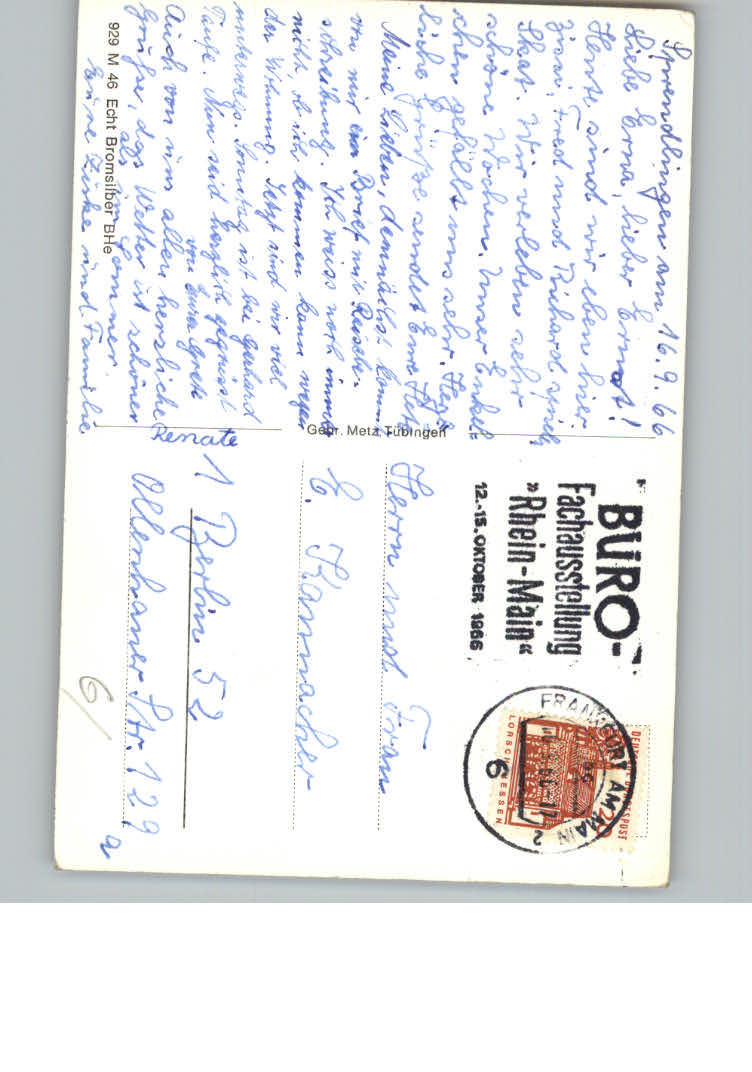 Sprendlingen am 16.9.66
Liebe Erna, lieber Ernst!
Heute sind wir eben hier
Fred und Richard spielen
Skat. Wir verleben sehr
schöne Wochen. Unser Enkel-
chen gefällt uns sehr. Herz-
liche Grüße sendet Eure
Meine Lieben, demnächst kommt
von mir ein Brief mit
schreibung. Ich weiss noch immer
nicht, ob ich kommen kann wegen
der Wohnung. Jetzt sind wir viel
unterwegs. Sonntag ist bei Gerhard
Taufe. Nun seid herzlich gegrüsst
von Eura Grete
Auch von uns allen herzliche
Grüße, das Wetter ist schöner
als im Sommer
Eure und Familie
Renate
929 M 46 Echt Bromsilber BHe
Gebr. Metz, Tübingen
BÜRO-
Fachausstellung
»Rhein-Main«
12.-15. OKTOBER 1966
FRANKFURT AM MAIN 2
6
DEUTSCHE BUNDESPOST
20
LORSCH HESSEN
Herrn und Frau
E. Kannacher
1 Berlin 52
Ollenhauer Str. 129
a
6/